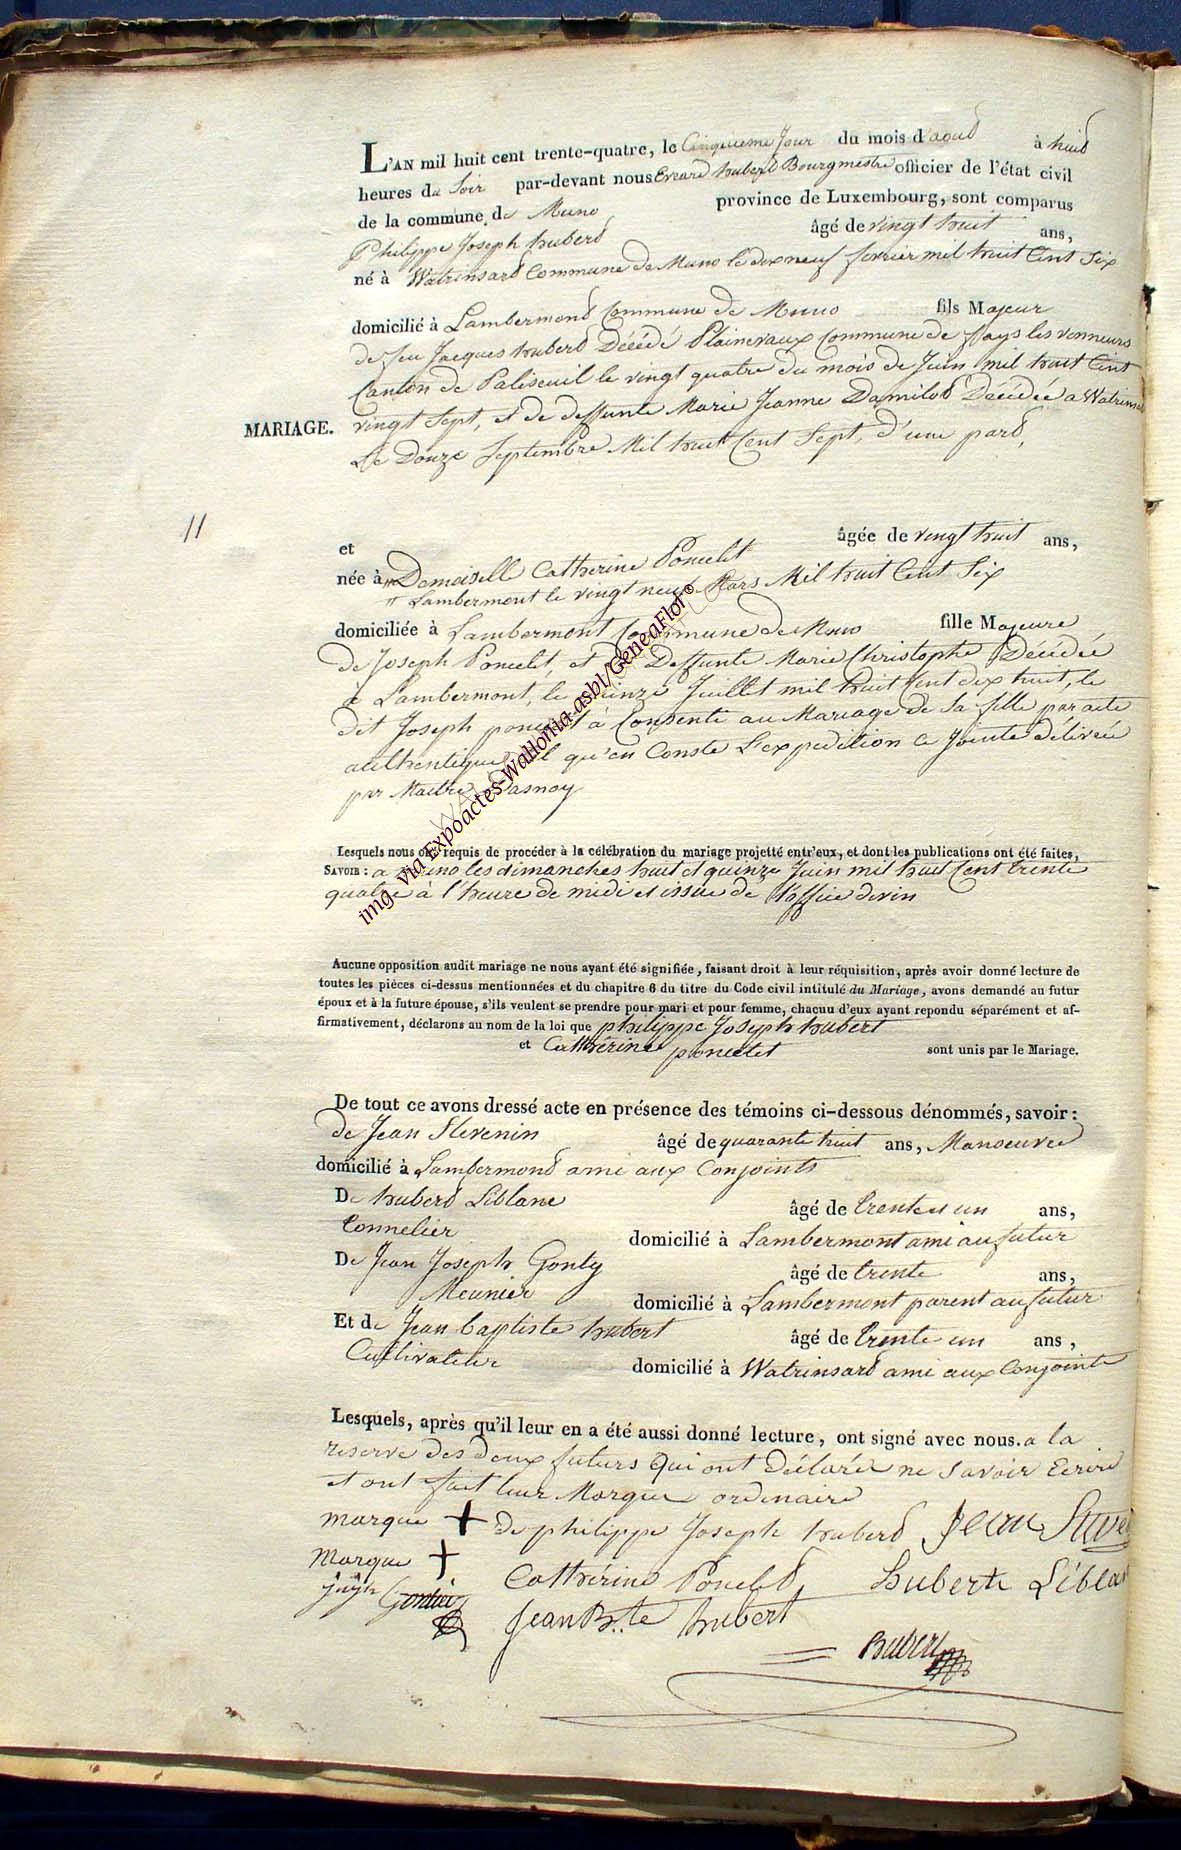 L'AN mil huit cent trente-quatre, le Cinquieme Jour du mois d'aout à huit
heures du Soir par-devant nous Evrard hubert Bourgmestre officier de l'état civil
de la commune de Muno province de Luxembourg, sont comparus
Philippe Joseph hubert âgé de vingt huit ans,
né à Watrinsart Commune de Muno le dix neuf fevrier mil huit Cent Six
domicilié à Lambermont Commune de Muno fils Majeur
de feu Jacques hubert Décédé Plainevaux Commune de fays les venneurs
Canton de Paliseuil le vingt quatre du mois de Juin mil huit Cent
MARIAGE. vingt Sept, et de deffunte Marie Jeanne Damilot Décédée a Watrinsart
Le Douze Septembre Mil huit Cent Sept, d'une part,
11
et âgée de vingt huit ans,
née à Demoiselle Catherine Poncelet
Lambermont le vingt neuf Mars Mil huit Cent Six
domiciliée à Lambermont Commune de Muno fille Majeure
de Joseph Poncelet, et de Deffunte Marie Christophe Décédée
à Lambermont, le quinze Juillet mil huit Cent dix huit, le
dit Joseph poncelet à Consenti au Mariage de Sa fille par acte
authentique tel qu'en Conste L'expedition ce Jointe délivrée
par Maitre Dasnoy
Lesquels nous ont requis de procéder à la célébration du mariage projetté entr'eux, et dont les publications ont été faites,
SAVOIR : a Muno les dimanches huit et quinze Juin mil huit Cent trente
quatre à l'heure de midi et issue de l'office divin
Aucune opposition audit mariage ne nous ayant été signifiée, faisant droit à leur réquisition, après avoir donné lecture de
toutes les pièces ci-dessus mentionnées et du chapitre 6 du titre du Code civil intitulé du Mariage, avons demandé au futur
époux et à la future épouse, s'ils veulent se prendre pour mari et pour femme, chacun d'eux ayant repondu séparément et af-
firmativement, déclarons au nom de la loi que philippe Joseph hubert
et Cathérine poncelet sont unis par le Mariage.
De tout ce avons dressé acte en présence des témoins ci-dessous dénommés, savoir :
de Jean Slevenin âgé de quarante huit ans, Manoeuvre
domicilié à Lambermont ami aux Conjoints
De hubert Leblanc âgé de trente et un ans,
Tonnelier domicilié à Lambermont ami au futur
De Jean Joseph Gonty âgé de trente ans,
Meunier domicilié à Lambermont parent au futur
Et de Jean baptiste hubert âgé de trente un ans,
Cultivateur domicilié à Watrinsart ami aux Conjoints
Lesquels, après qu'il leur en a été aussi donné lecture, ont signé avec nous. a la
reserve des deux futurs Qui ont déclarée ne Savoir Ecrire
et ont fait leur Marque ordinaire
marque + de philippe Joseph hubert Jean
Marque + Catherine Poncelet Hubert Leblan
Jean Bte hubert
Hubert
img. via Expoactes-Wallonia-asbl/GeneaFlor©